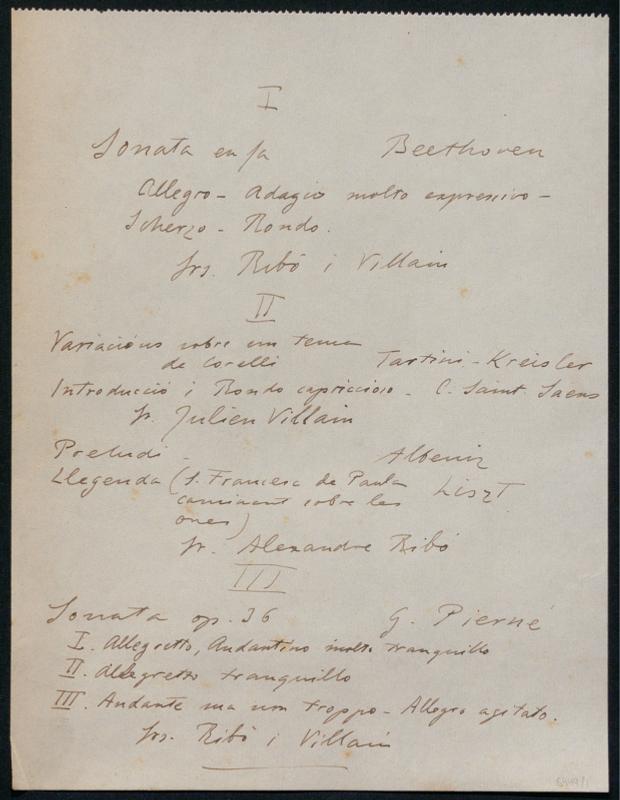 I
Sonata en fa Beethoven
Allegro - Adagio molto expressivo -
Scherzo - Rondo.
Srs. Ribó i Villain
II
Variacions sobre un tema
de Corelli Tartini - Kreisler
Introducció i Rondo capriccioso - C. Saint Saens
Sr. Julien Villain
Preludi - Albeniz
Llegenda (S. Francesc de Paula Liszt
caminant sobre les
ones)
Sr. Alexandre Ribó
III
Sonata op. 36 G. Pierné
I. Allegretto, Andantino molto tranquillo
II. Allegretto tranquillo
III. Andante ma non troppo - Allegro agitato.
Srs. Ribó i Villain